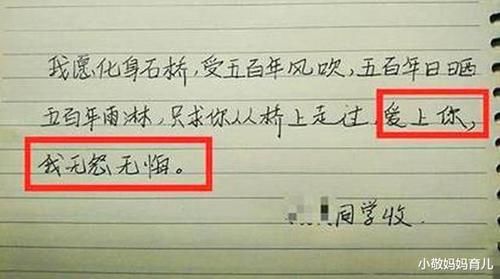 我愿化身石桥，受五百年风吹，五百年日晒
五百年雨淋，只求你从桥上走过，爱上你，
我无怨无悔。
同学收
小敬妈妈育儿